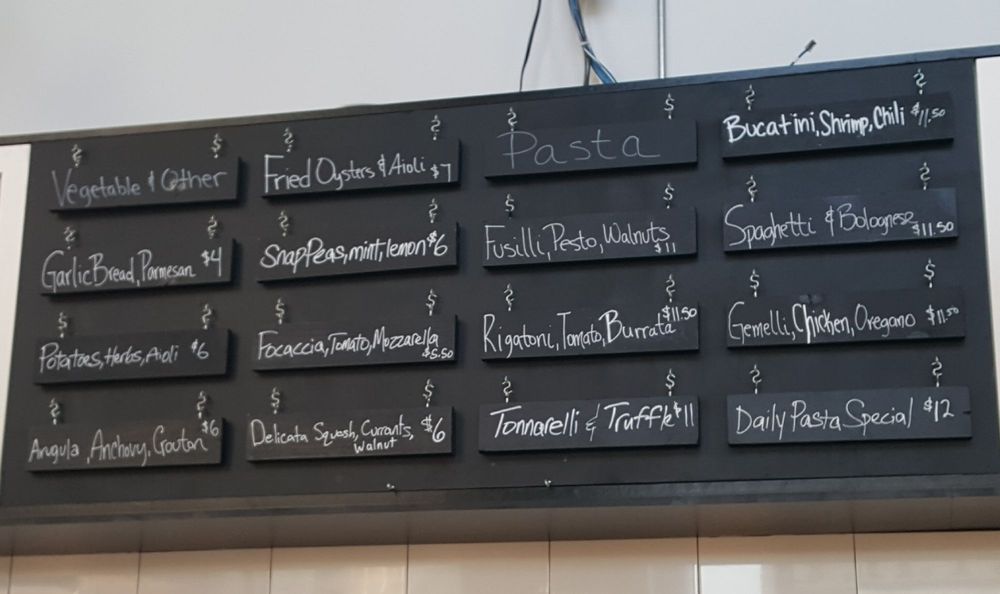 Vegetable & Other
Garlic Bread, Parmesan $4
Potatoes, Herbs, Aioli $6
Arugula, Anchovy, Crouton $6
Fried Oysters & Aioli $7
Snap Peas, mint, lemon $6
Focaccia, Tomato, Mozzarella
$5.50
Delicata Squash, Currants, $6
walnut
Pasta
Fusilli, Pesto, Walnuts
$11
Rigatoni, Tomato, Burrata $11.50
Tonnarelli & Truffle $11
Bucatini, Shrimp, Chili $11.50
Spaghetti & Bolognese $11.50
Gemelli, Chicken, Oregano $11.50
Daily Pasta Special $12